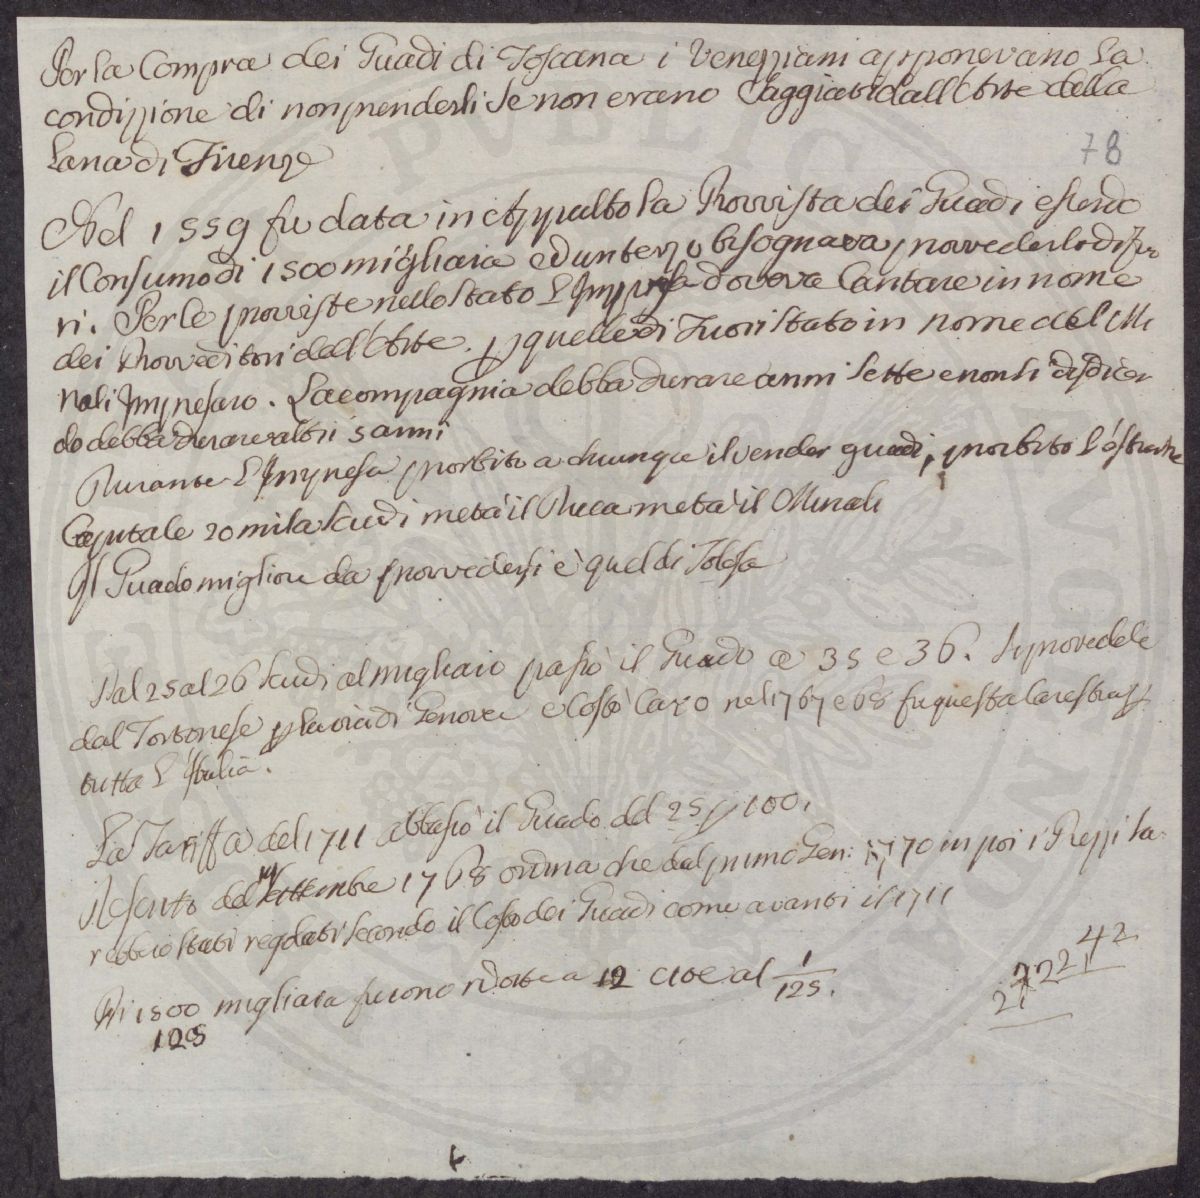 Per la Compra dei Guadi di Toscana i Veneziani apponevano la
condizzione di non prenderli se non erano saggiati dall'Arte della
Lana di Firenze
78
Nel 1559 fu data in Appalto la Provvista dei Guadi essendo
il Consumo di 1500 migliaia ed un terzo bisognava provvederlo di fuo
ri. Per le provviste nello stato l'Impresa doveva Cantare in nome
dei Provveditori dell'Arte. p quelle di Fuori stato in nome del Mi
nali Impresaro. La compagnia debba durare anni sette e non si disdicen
do debba durare altri 5 anni
Durante l'Impresa proibito a chiunque il vender guadi, proibito l'estrarne
Capitale 20 mila scudi metà il Duca metà il Minali
Il Guado migliore da provvedersi è quel di Tolosa
Dal 25 al 26 scudi al migliaio passò il Guado a 35 e 36. Si provede le
dal Tortonese p la via di Genova e Costò Caro nel 1767 e 68 fu questa Carestia p
tutta l'Italia.
La Tariffa del 1711 abbassò il Guado del 25 p 100.
Il scritto del settembre 1768 ordina che dal primo Gen: 1770 in poi i Prezzi sa
rebbero stati regolati secondo il Costo dei Guadi come avanti il 1711
Di 1500 migliaia furono ridotte a 12 cioè al 1/125.
125
42